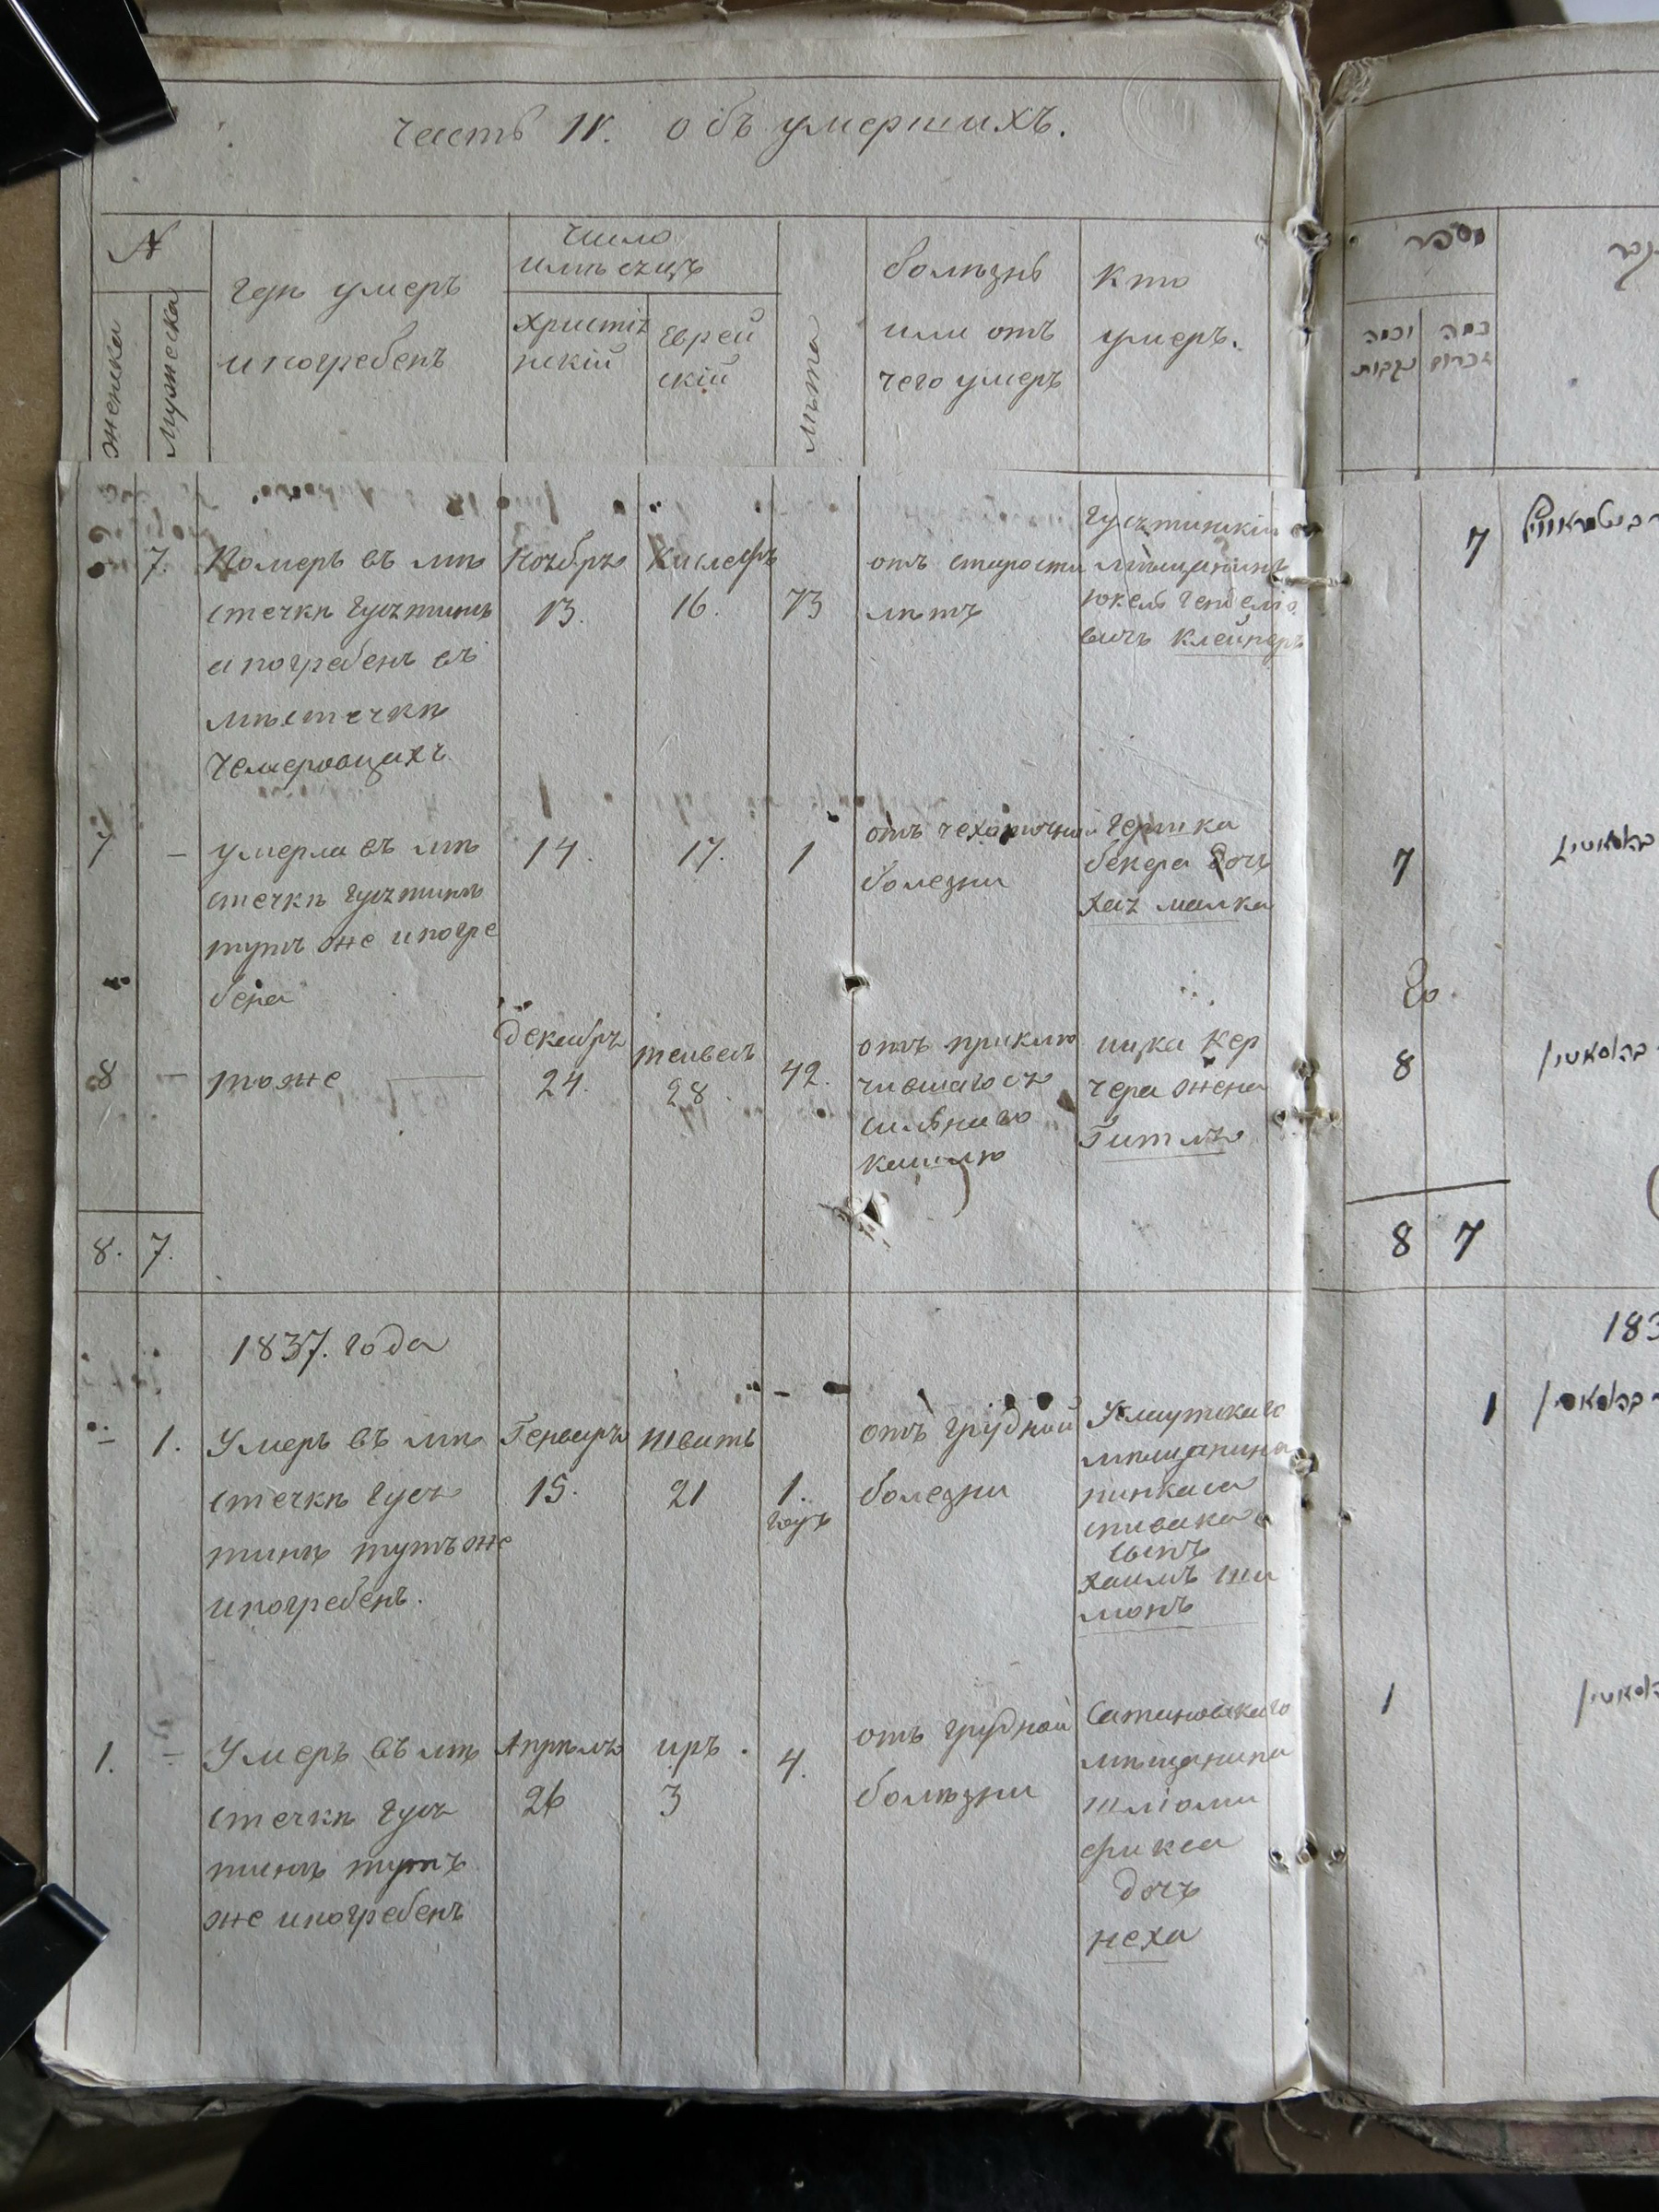 Часть IV. объ умершихъ.
№
женска
мужеска
гдѣ умеръ
и погребенъ
Число
и мѣсяцъ
Христіа
нскій
Еврей
скій
лѣта
болѣзнь
или отъ
чего умеръ
кто
умеръ.
מספר
7. Померъ въ мѣ
стечкѣ Гусятинѣ
и погребенъ въ
мѣстечкѣ
Чемеровцахъ
Ноябръ
13.
Кислефъ
16.
73
отъ старости
лѣтъ
Гусятинскій
мѣщанинъ
юкель Генделіо
вичъ Клейнеръ
7
7 – умерла въ мѣ
стечкѣ Гусятинѣ
тутъ же и погре
бена
14.
17.
1
отъ чехоточной
болезни
Гершка
бекера дочь
хая малка
7
8 – тоже
декабръ
24.
тейвесъ
28.
42.
отъ приклю
чившагося
сильнаго
кашлю
ицка Кер
чера жена
Гитля
8
8. 7.
8 7
1837. года
183
– 1. Умеръ въ мѣ
стечкѣ Гуся
тинѣ тутъ же
и погребенъ.
Генваръ
15.
тватъ
21
1.
годъ
отъ грудной
болезни
мѣщанина
пинкаса
спивака
сынъ
хаимъ ши
монъ
1
1. – Умеръ въ мѣ
стечкѣ Гуся
тинѣ тутъ
же и погребенъ
Апрѣль
26
иръ.
3
4.
отъ грудной
болѣзни
Сатановскаго
мѣщанина
шліоми
фикса
дочь
неха
1